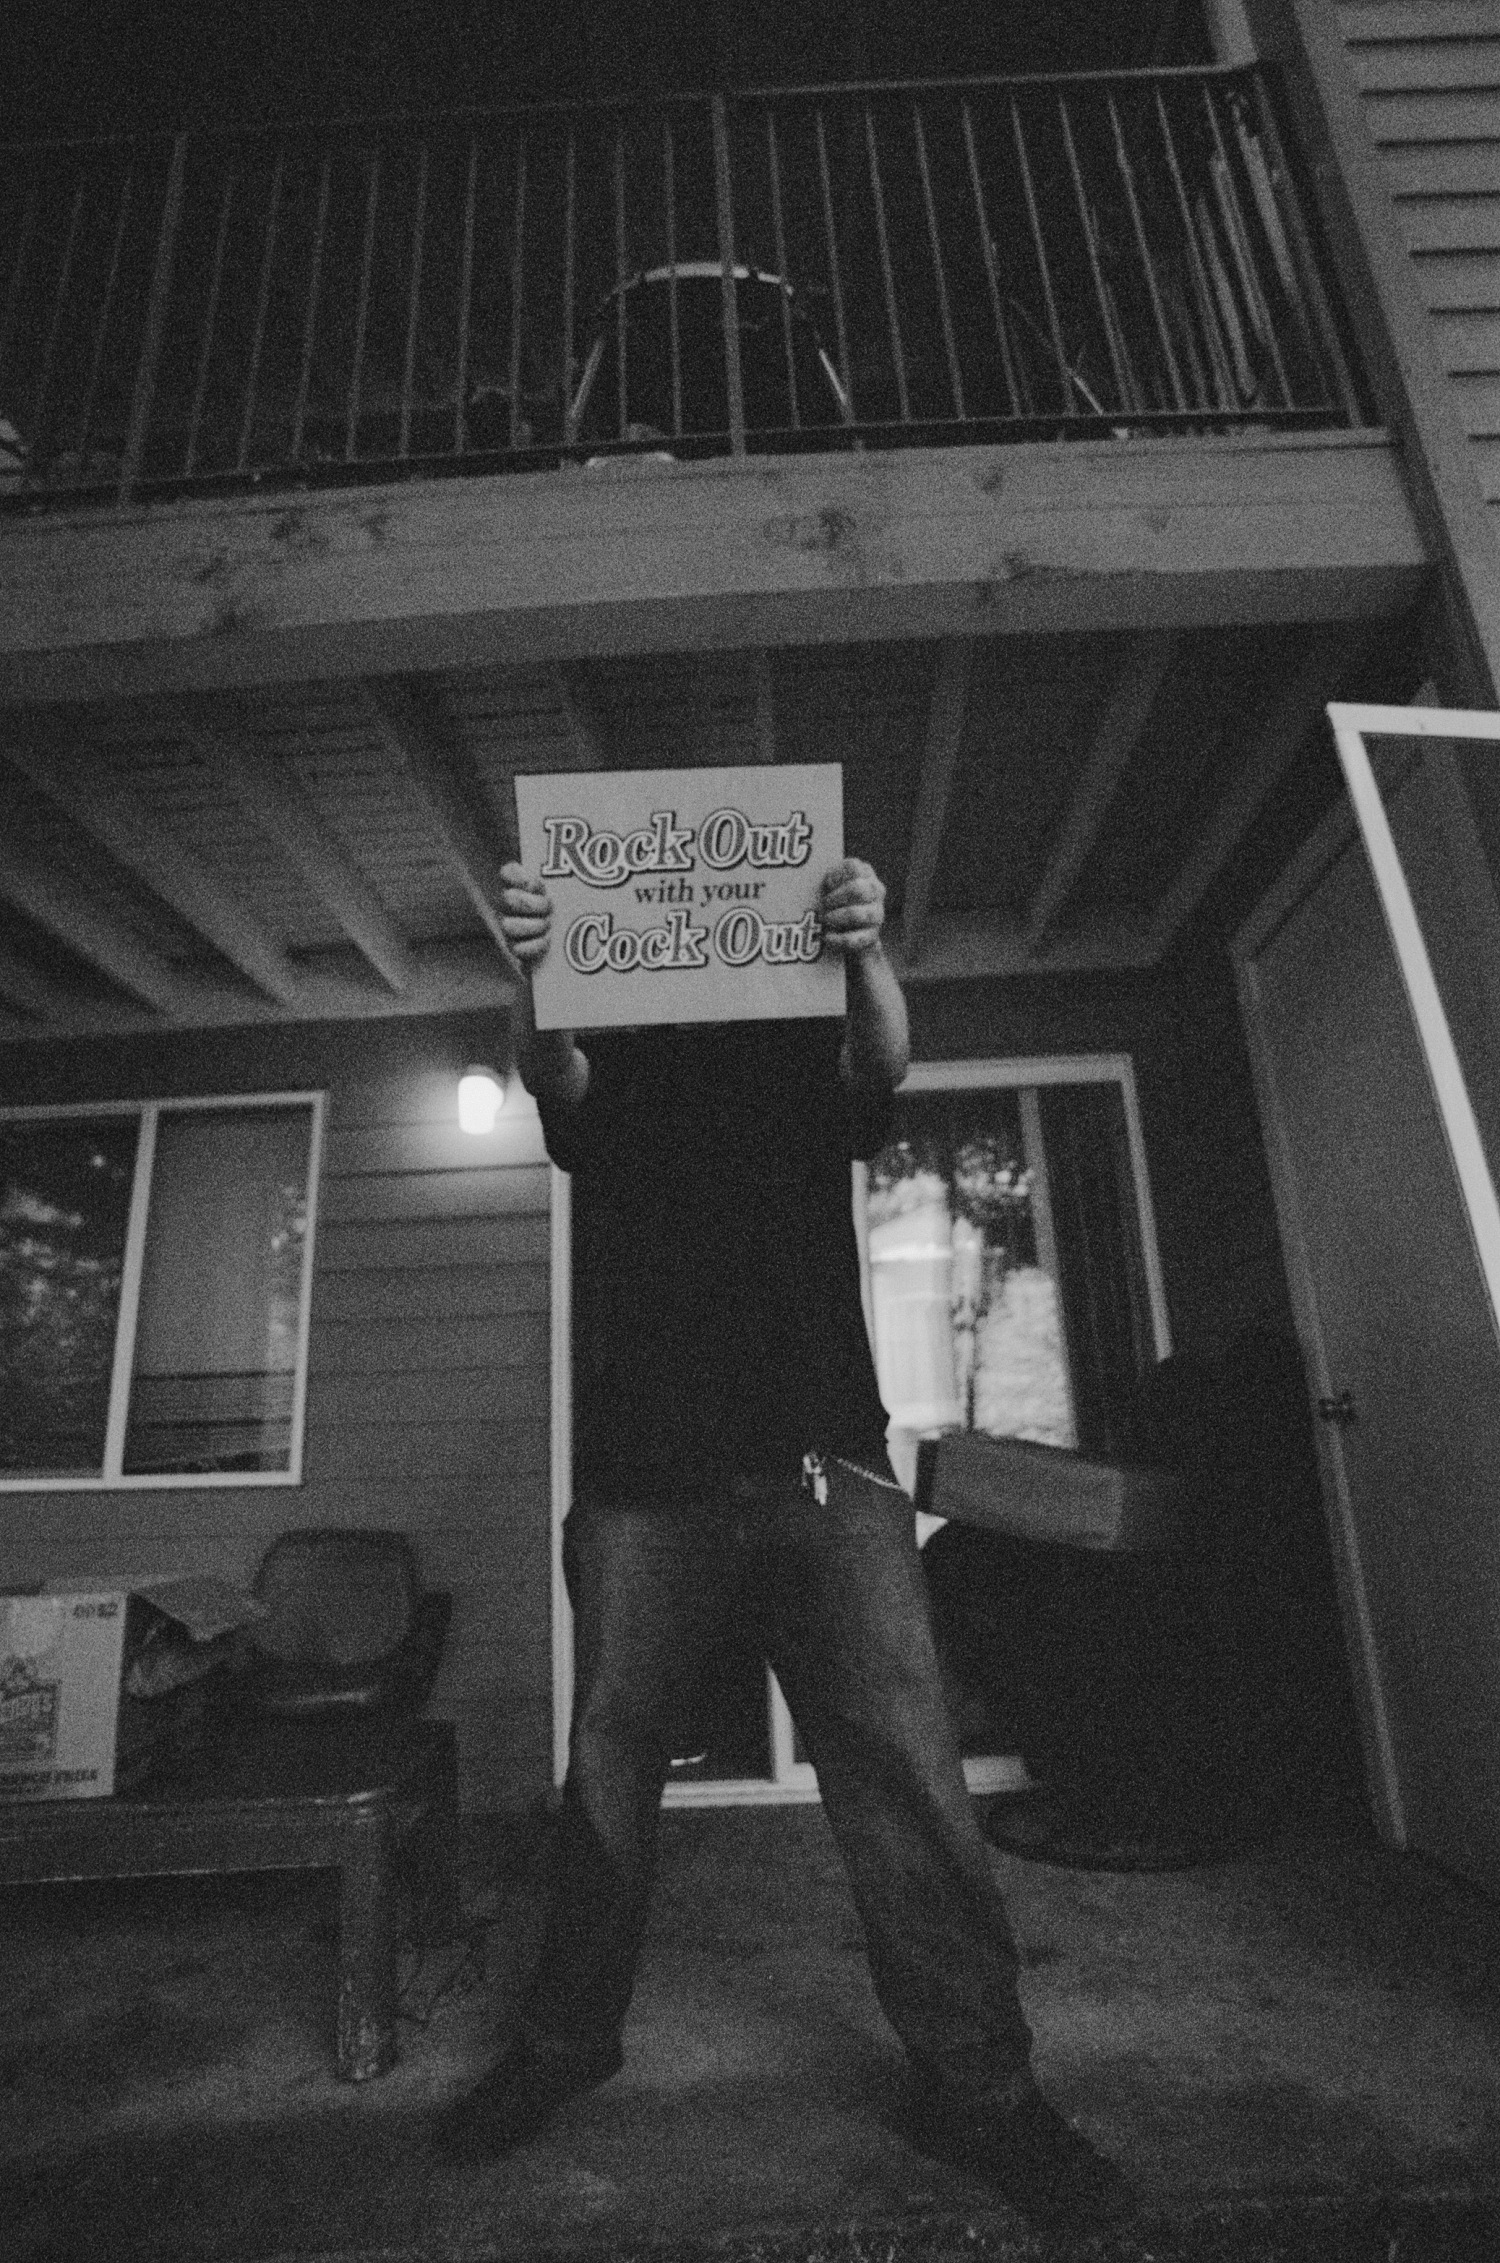 Rock Out
with your
Cock Out